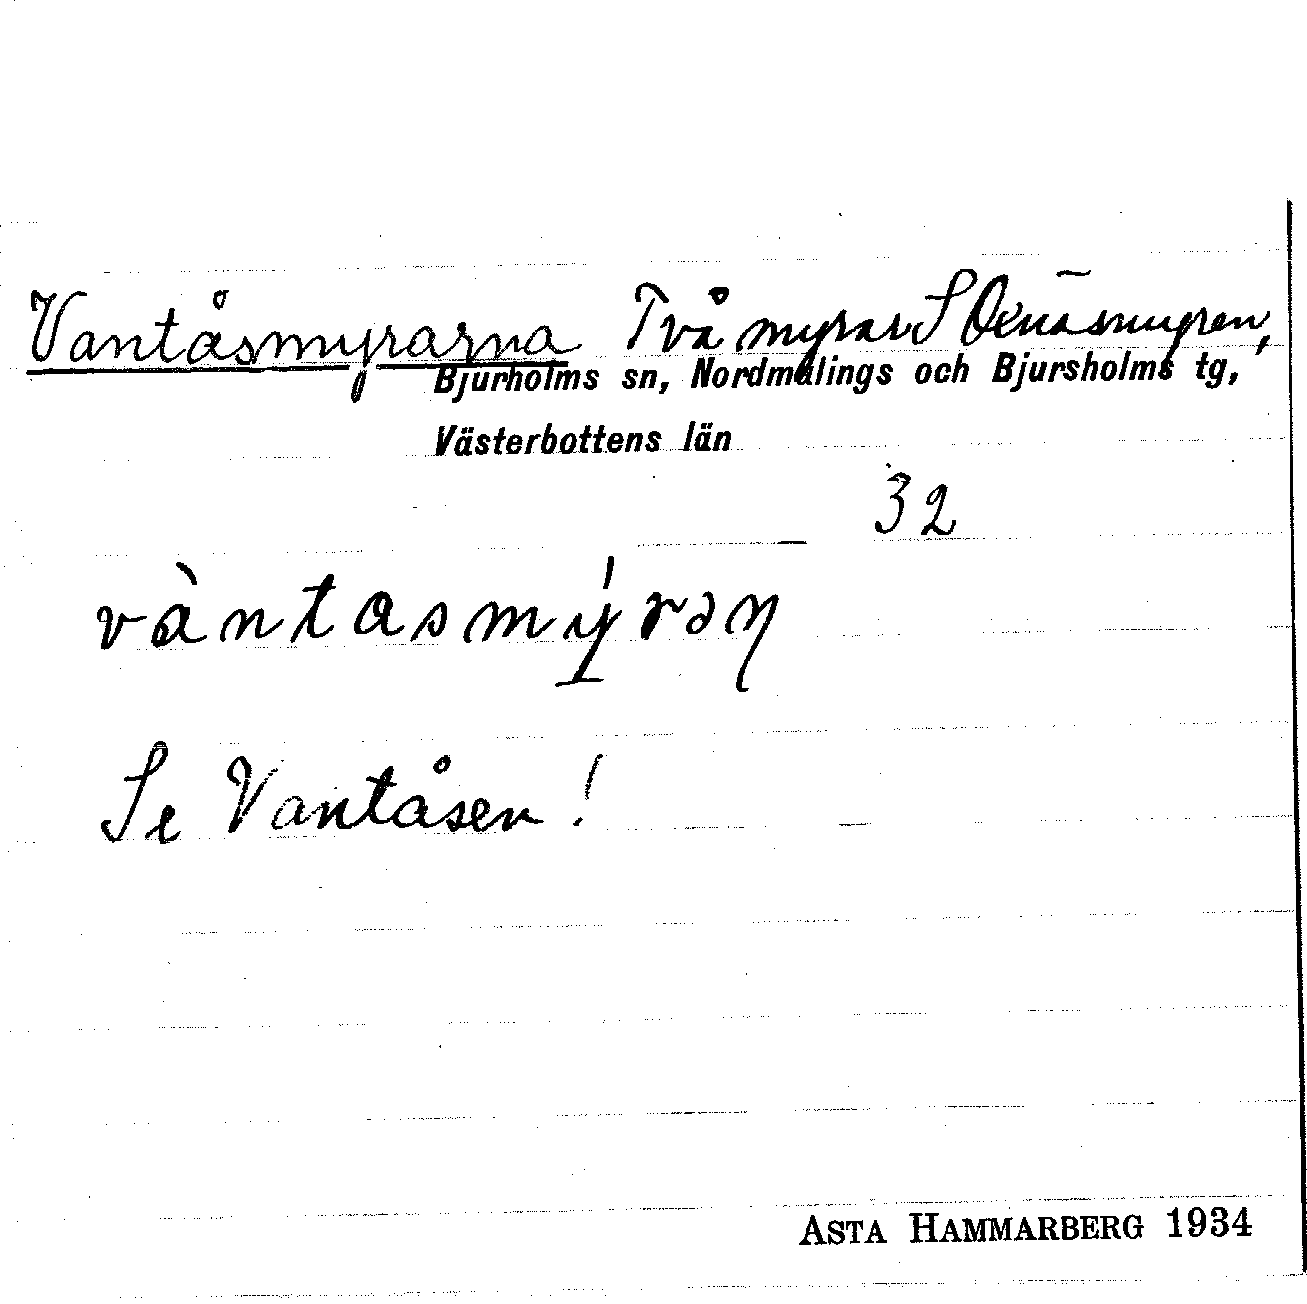 Vantåsmyrarna Två myrar S
Bjurholms sn, Nordmalings och Bjursholms tg,
Västerbottens län
32
vàntasmýrəɳ
Se Vantåsen!
ASTA HAMMARBERG 1934